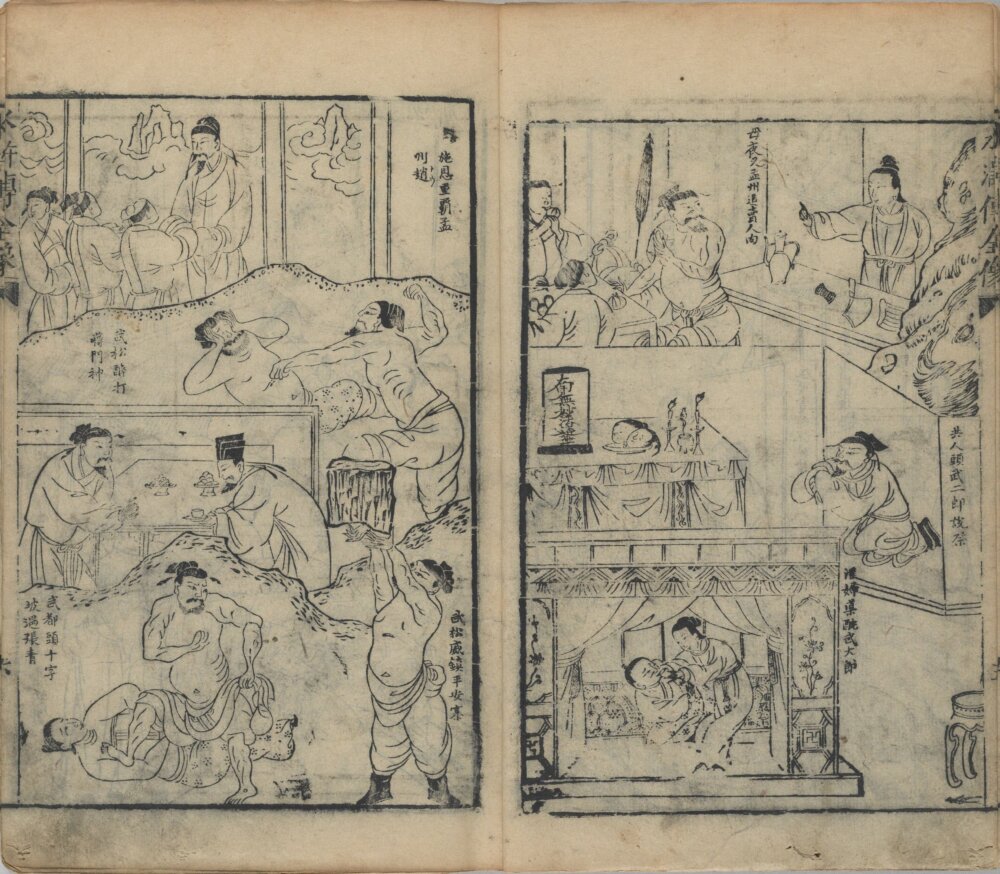 水滸傳全像
母夜叉孟州道賣人肉
供人頭武二郎設祭
淫婦藥酖武大郎
施恩重霸孟
州道
武松醉打
蔣門神
武松威鎮平安寨
武都頭十字
坡遇張青
水滸傳全像